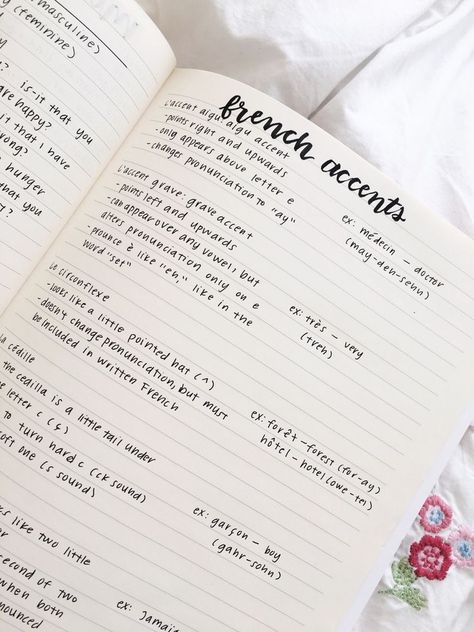 masculine)
y (feminine)
y?
? is-it that you
are happy?
s-it that I have
wrong?
hunger
that you
y?
french accents
l'accent aigu: aigu accent
-points right and upwards
-only appears above letter e
-changes pronunciation to "ay"
ex: médecin – doctor
(may-deh-senn)
l'accent grave: grave accent
-points left and upwards
-can appear over any vowel, but
alters pronunciation only on e
-prounce è like "en," like in the
word "set"
ex: très – very
(treh)
le circonflexe
-looks like a little pointed hat (^)
-doesn't change pronunciation, but must
be included in written French
ex: forêt – forest (for-ay)
hôtel – hotel (owe-tel)
la cédille
the cedilla is a little tail under
e letter c (ç)
to turn hard c (ck sound)
oft one (s sound)
ex: garçon – boy
(gahr-sohn)
ks like two little
er
second of two
when both
nounced
ex: Jamaï